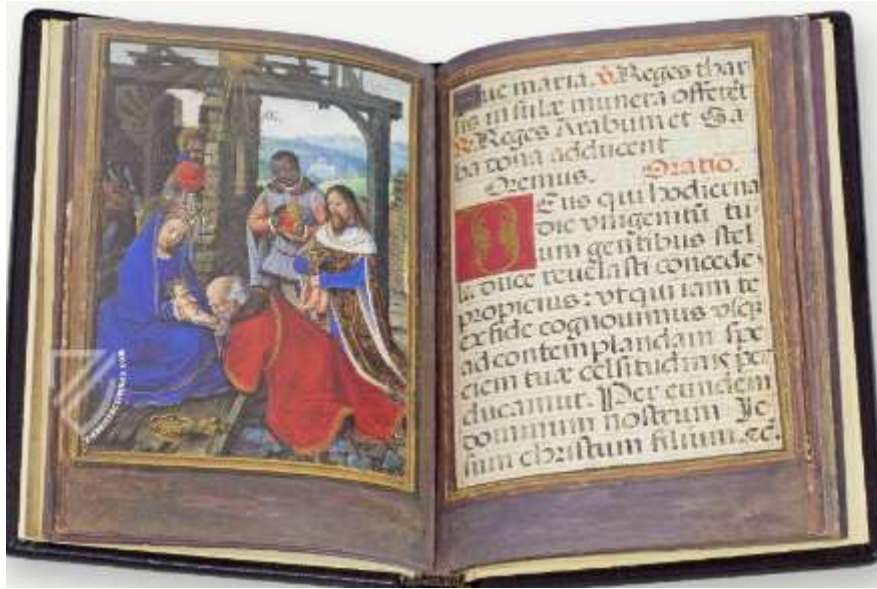 Aue maria. ℣. Reges thar
sis in sulæ munera offerẽt
℟. Reges Arabum et Sa
ba dona adducent
Oremus. Oratio.
Deus qui hodierna
die vnigenitũ tu
um gentibus stel
la duce reuelasti concede
propicius: vt qui iam te
ex fide cognouimus vsq
ad contemplandam spe
ciem tuæ celsitudinis per
ducamur. Per eundem
dominum nostrum Je
sum christum filium. ⁊c̃.